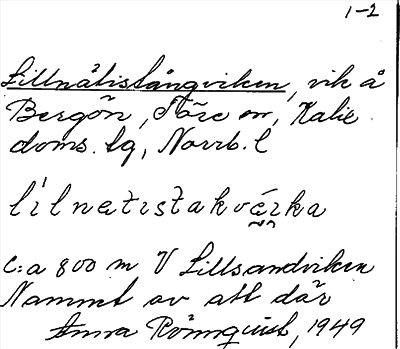 1-2
Lillnätistångviken, vik å
Bergön, Töre sn, Kalix
doms. lg, Norrb. l
lìlnætɪstakvéi̯ka
C:a 800 m V Lillsandviken
Namnet av att där
Anna Rönnquist, 1949